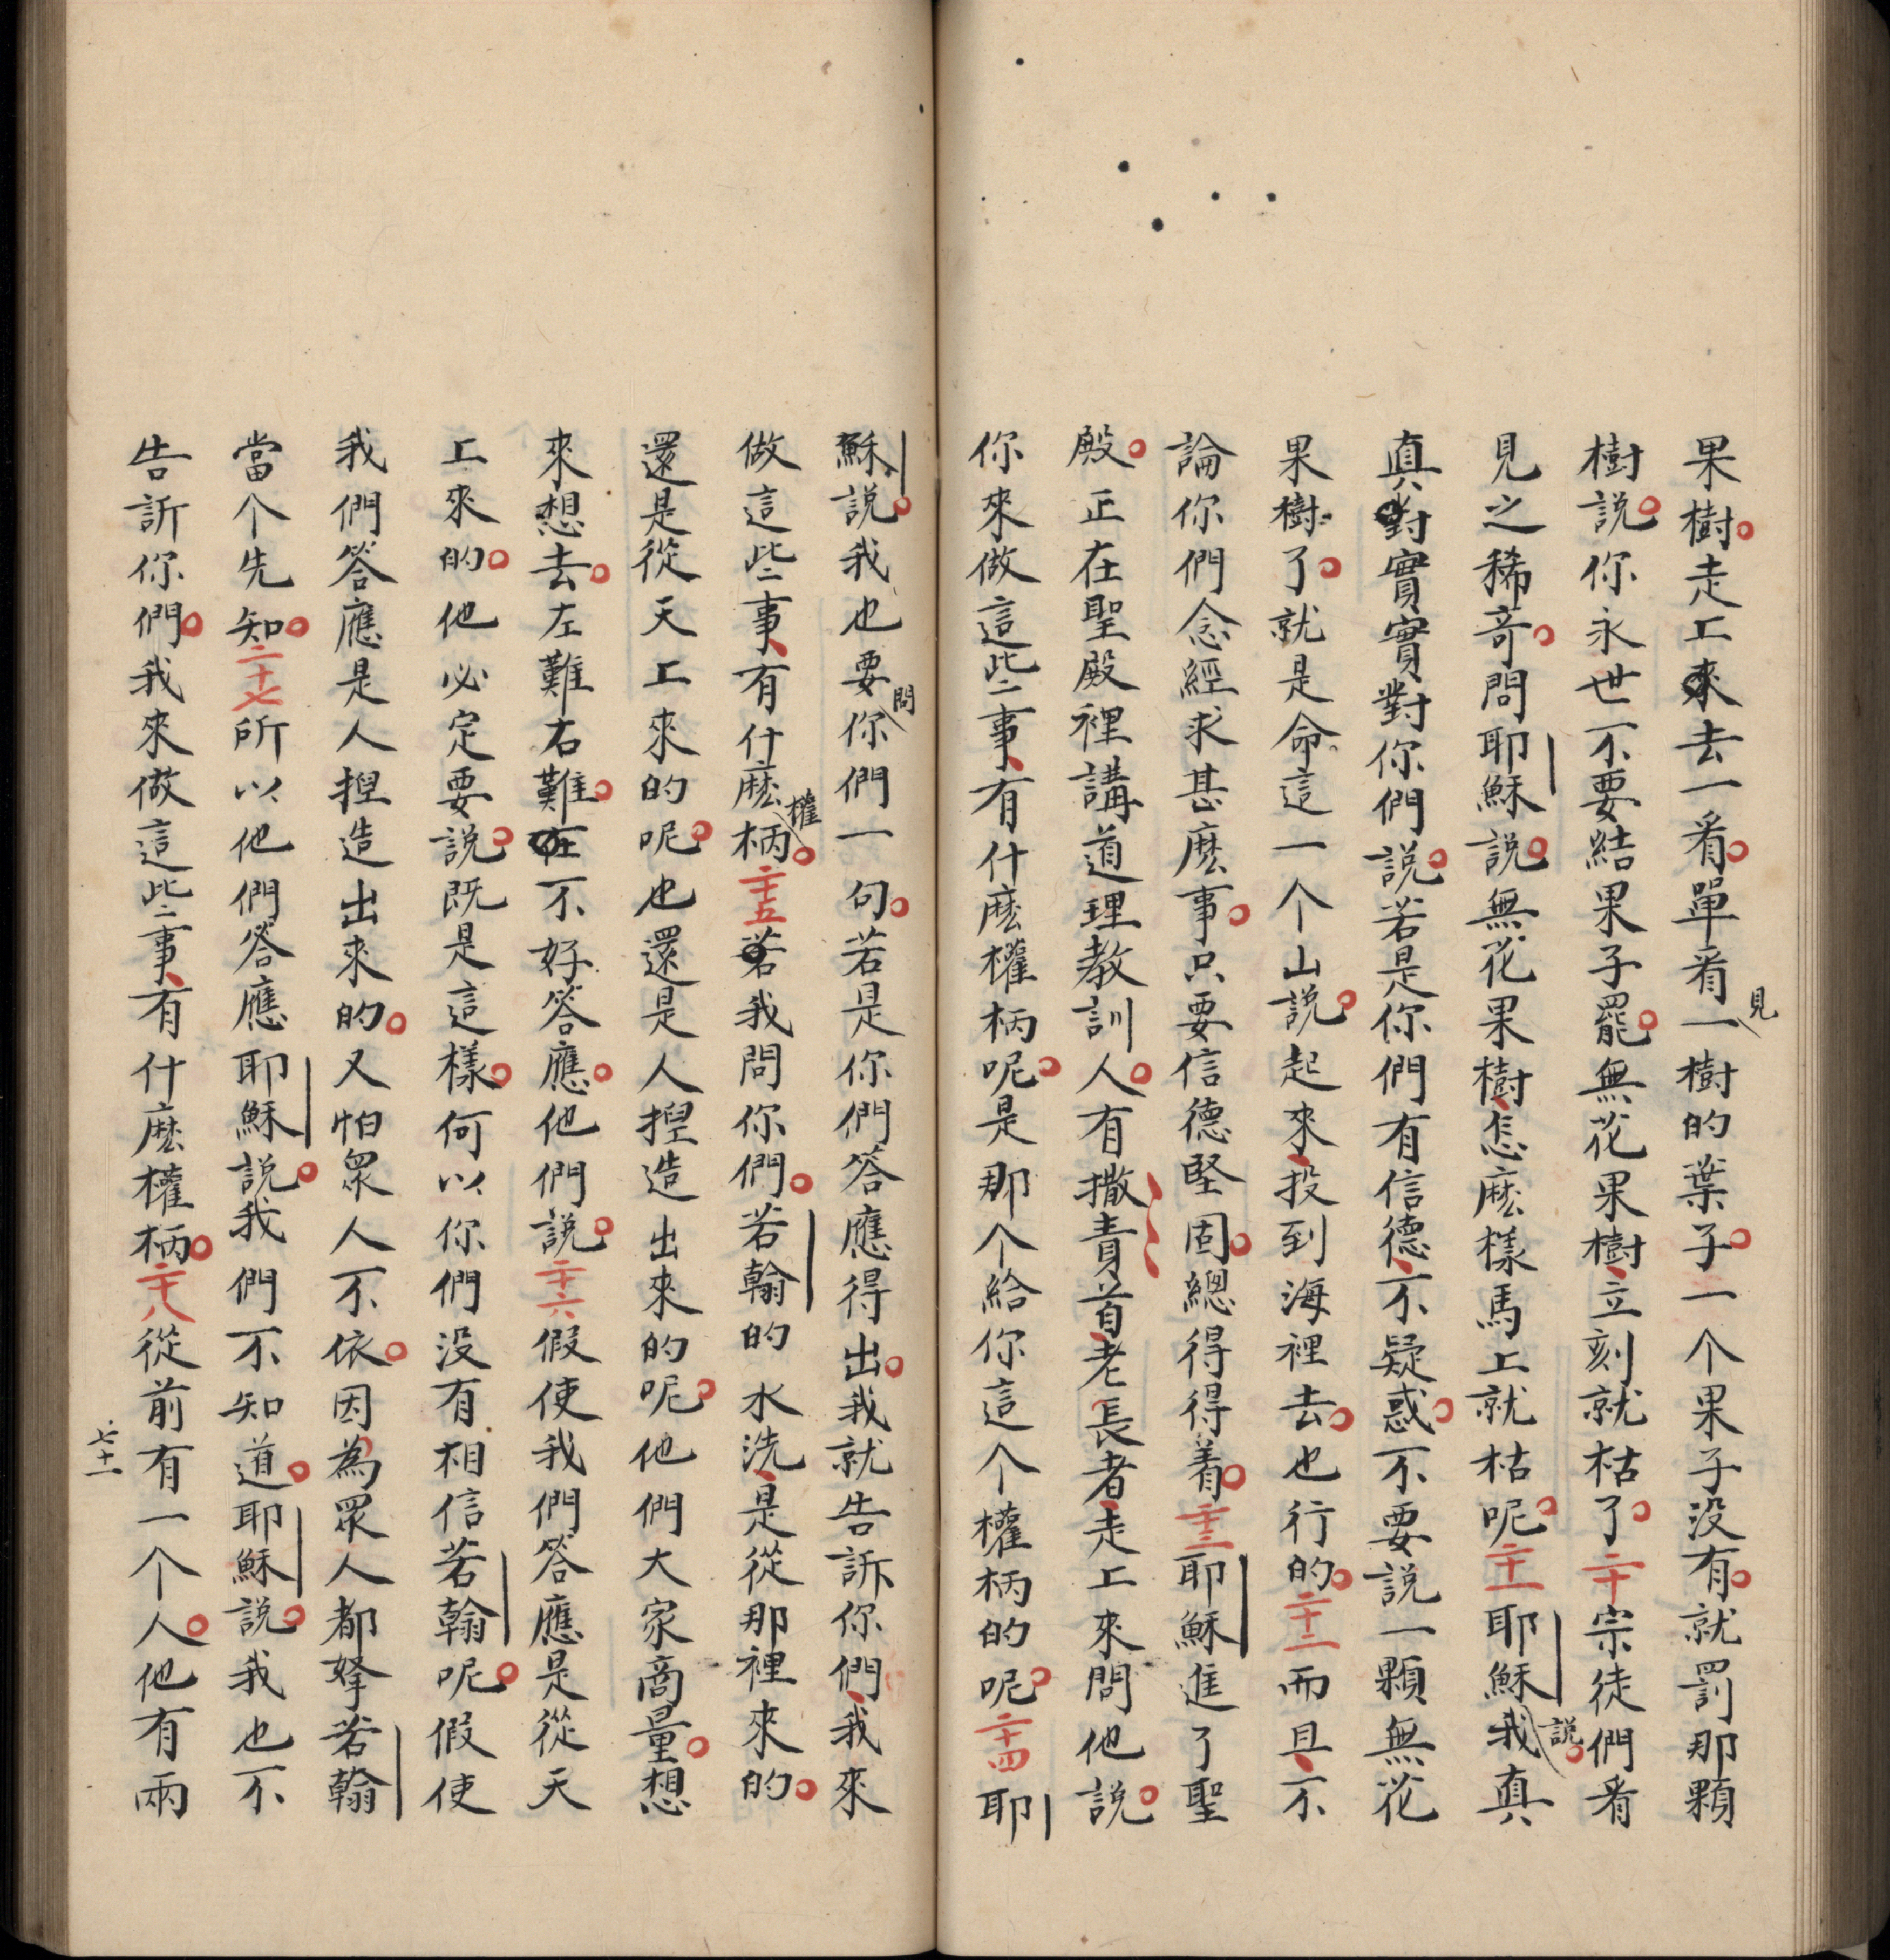 果樹。走上來去一看。單看見一樹的葉子。一个果子没有。就罰那顆
樹説。你永世不要結果子罷。無花果樹、立刻就枯了。二十宗徒們看
見之稀奇。問耶穌説。無花果樹、怎麽樣馬上就枯呢。二十一耶穌説。我真
真對實實對你們説。若是你們有信德、不疑惑。不要説一顆無花
果樹了。就是命這一个山説。起來、投到海裡去。也行的。二十二而且、不
論你們念經求甚麽事。只要信德堅固。總得得着。二十三耶穌進了聖
殿。正在聖殿裡講道理教訓人。有撒責首、老長者、走上來問他説。
你來做這些事、有什麽權柄呢。是那个給你這个權柄的呢。二十四耶
穌説。我也要問你們一句。若是你們答應得出。我就告訴你們、我來
做這些事、有什麽權柄。二十五若我問你們。若翰的水洗、是從那裡來的。
還是從天上來的呢。也還是人揑造出來的呢。他們大家商量。想
來想去。左難右難。在不好答應。他們説。二十六假使我們答應是從天
上來的。他必定要説。既是這樣。何以你們没有相信若翰呢。假使
我們答應是人揑造出來的。又怕眾人不依。因為眾人都拏若翰
當个先知。二十七所以他們答應耶穌説。我們不知道。耶穌説。我也不
告訴你們。我來做這些事、有什麽權柄。二十八從前有一个人。他有兩
七十一